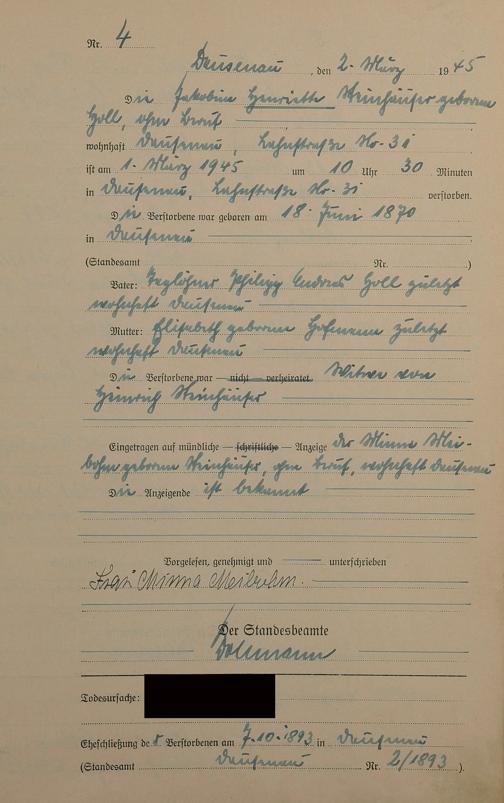 Nr. 4
Dausenau, den 2. März 1945
Die Jakobine Henriette Weinhäuser geborene
Holl, ohne Beruf
wohnhaft Dausenau, Lahnstraße No. 31
ist am 1. März 1945 um 10 Uhr 30 Minuten
in Dausenau, Lahnstraße No. 31 verstorben.
Die Verstorbene war geboren am 18. Juni 1870
in Dausenau
(Standesamt Nr. )
Vater: Taglöhner Philipp Andreas Holl zuletzt
wohnhaft Dausenau
Mutter: Elisabeth geborene Hofmann zuletzt
wohnhaft Dausenau
Die Verstorbene war — nicht — verheiratet Witwe von
Heinrich Weinhäuser
Eingetragen auf mündliche — schriftliche — Anzeige der Minna Mei-
bohm geborene Weinhäuser, ohne Beruf, wohnhaft Dausenau
Die Anzeigende ist bekannt
Vorgelesen, genehmigt und unterschrieben
Frau Minna Meibohm.
Der Standesbeamte
Todesursache:
Eheschließung der Verstorbenen am 7.10.1893 in Dausenau
(Standesamt Dausenau Nr. 2/1893).